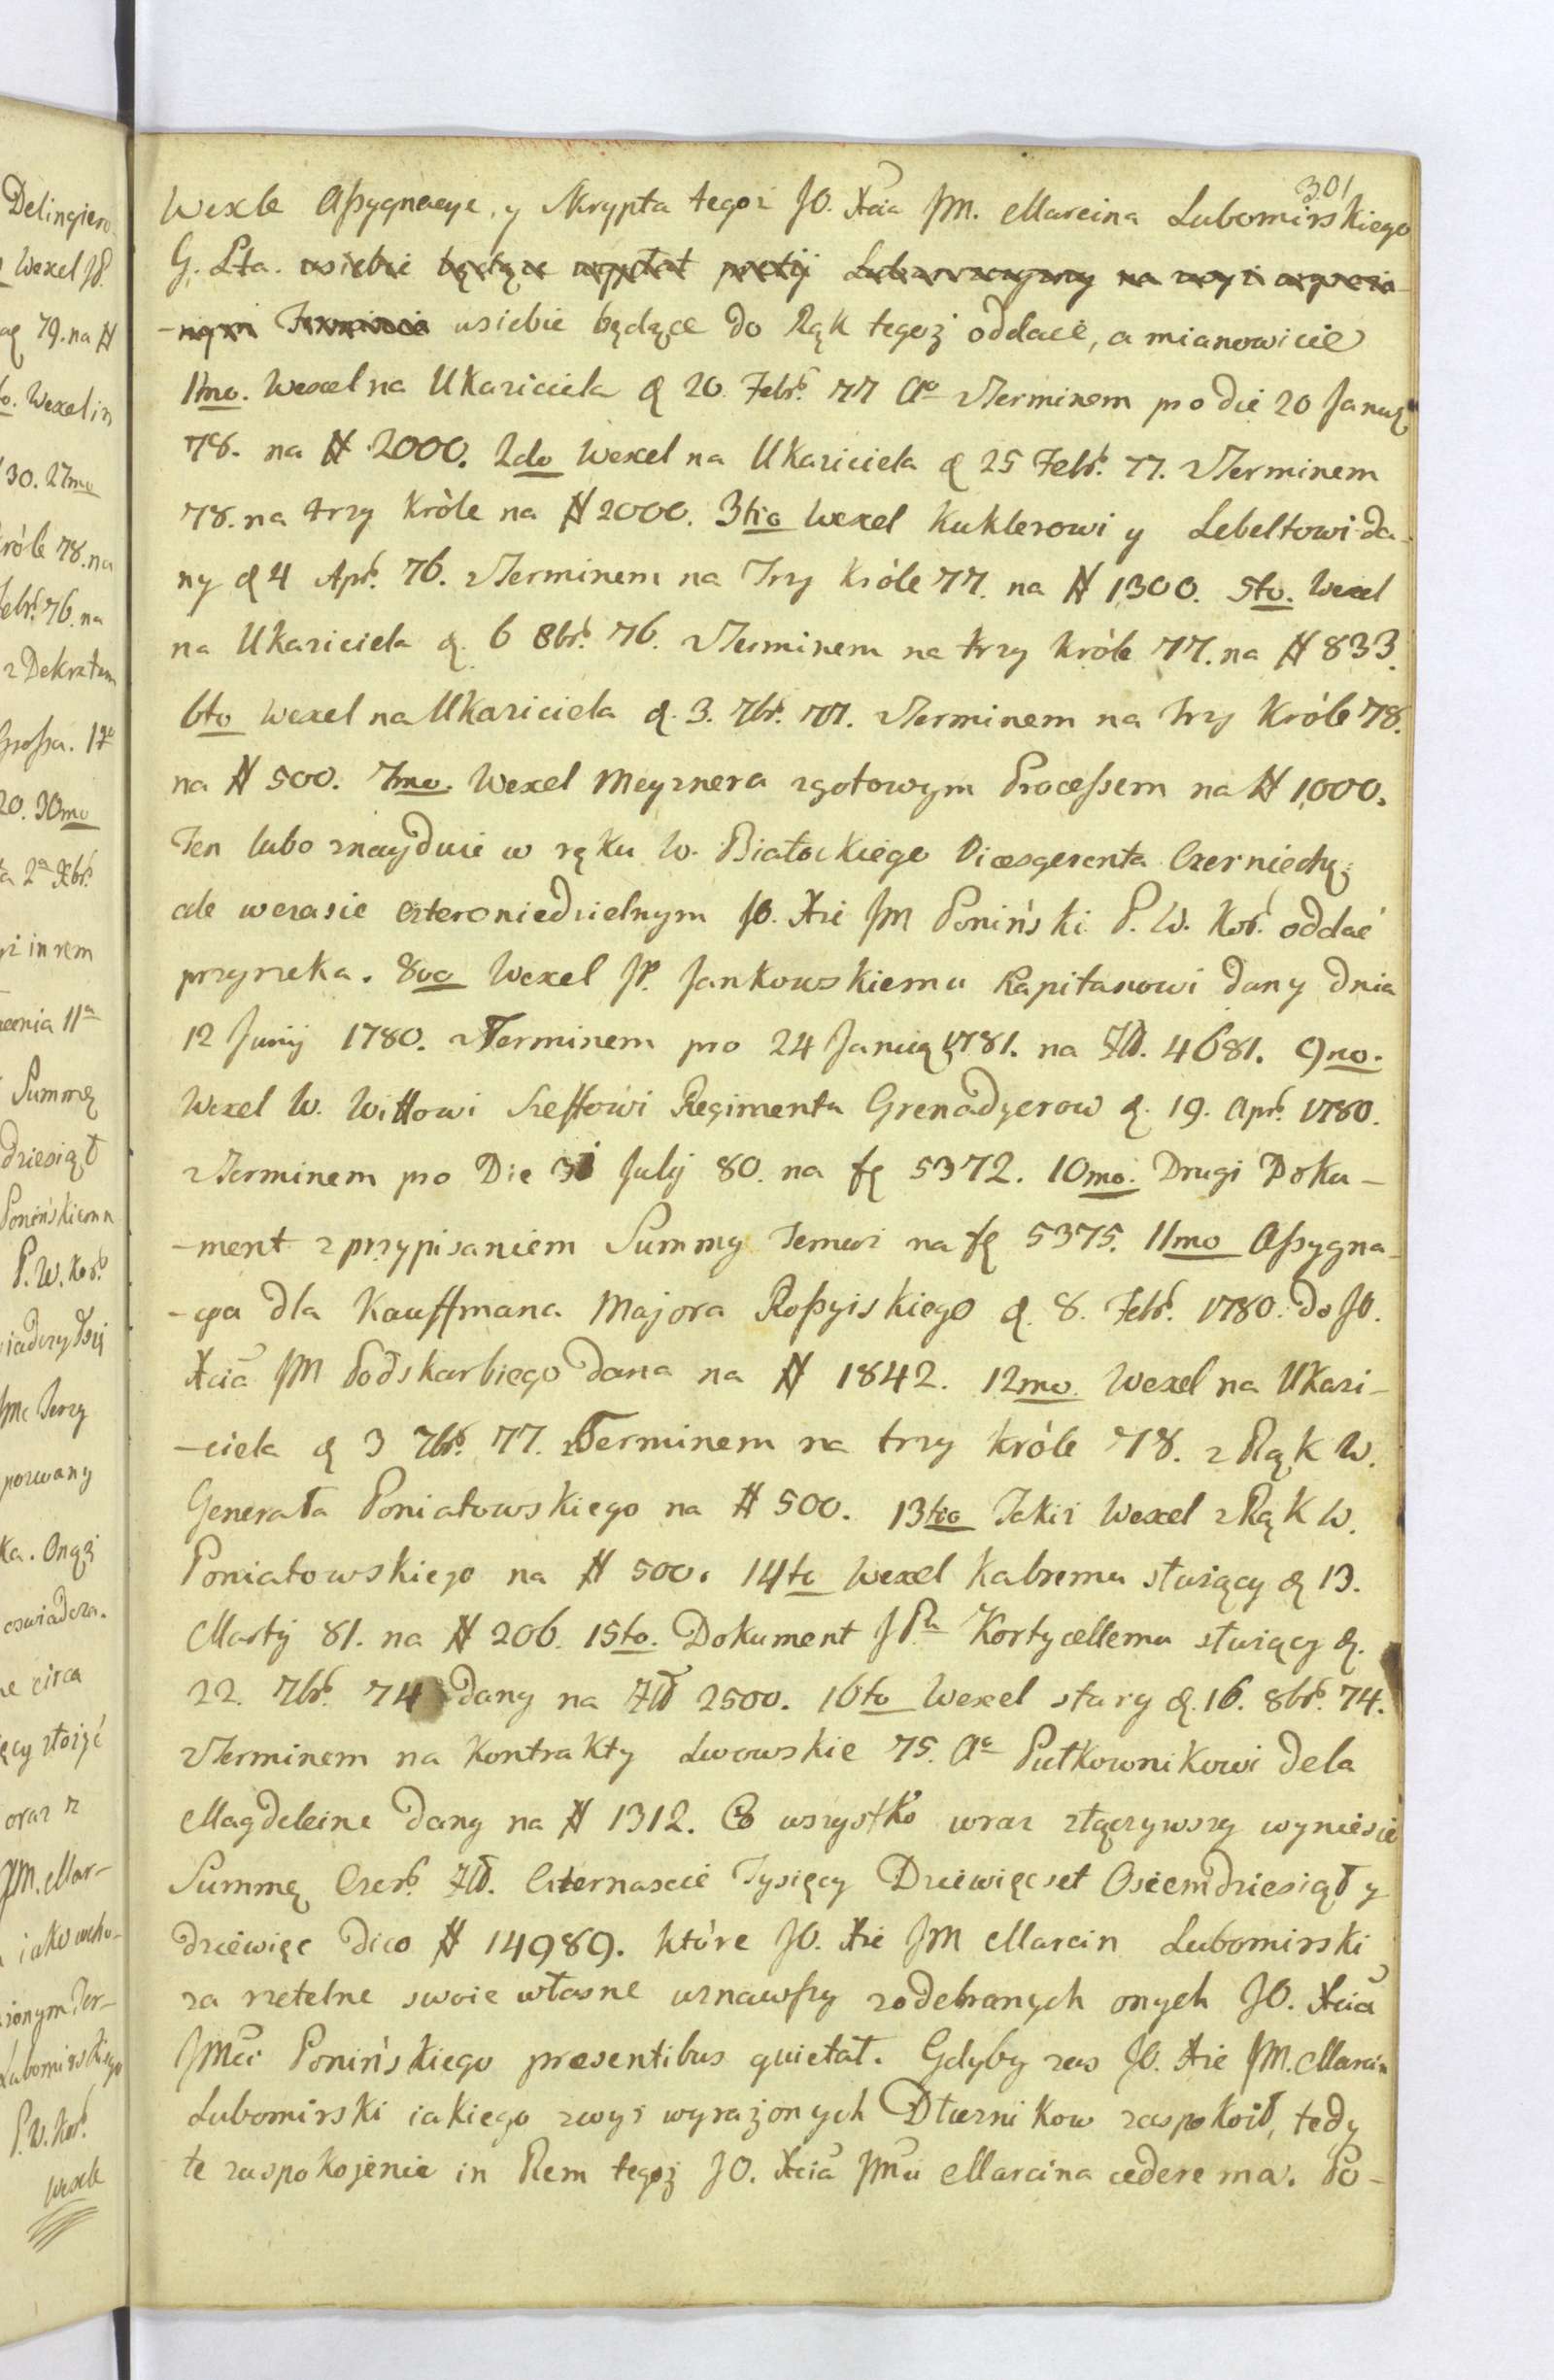 301
Wexle Assygnacye, y Skrypta tegoż JO. Xcia JM. Marcina Lubomirskiego
G. Lta. usiebie będące wypłat na wyż
-nym Terminie usiebie będące do Rąk tegoż oddacie, a mianowicie
1mo. Wexel na Ukaziciela d 20 Febr. 77 Ao z Terminem pro die 20 Januar
78. na # 2000. 2do Wexel na Ukaziciela d 25 Febr. 77. z Terminem
78. na trzy Króle na # 2000. 3tio Wexel Kuklerowi y Lebeltowi da-
ny d 4 Apr. 76. z Terminem na Trzy Króle 77. na # 1300. 5to. Wexel
na Ukaziciela d. 6 8br. 76. z Terminem na trzy Króle 77. na # 833.
6to Wexel na Ukaziciela d. 3. 7br. 77. z Terminem na Trzy Króle 78.
na # 500. 7mo. Wexel Meyznera zgotowym Processem na # 1000.
Ten lubo znayduie w ręku W. Białockiego Vicesgerenta Czerniech:
ale wczasie czteroniedzielnym JO. Xże JM Poniński P. W. Kor. oddać
przyrzeka. 8vo Wexel JP. Jankowskiemu Kapitanowi dany dnia
12 Junij 1780. z Terminem pro 24 Januar 1781. na Zł. 4681. 9no.
Wexel W. Wittowi Szeffowi Regimentu Grenadyerow d. 19. Apr. 1780.
z Terminem pro Die 31 Julij 80. na fl 5372. 10mo. Drugi Doku-
-ment z przypisaniem Summy Temuż na fl 5375. 11mo Assygna-
-cya dla Kauffmana Majora Rossyiskiego d. 8. Febr. 1780. do JO.
Xcia JM Podskarbiego dana na # 1842. 12mo. Wexel na Ukazi-
-ciela d 3 7br. 77. z Terminem na trzy Króle 78. z Rąk W.
Generała Poniatowskiego na # 500. 13tio Takiż Wexel z Rąk W.
Poniatowskiego na # 500. 14to Wexel Kabremu służący d 13.
Martij 81. na # 206. 15to. Dokument JPu Kortycellemu służący d.
22. 7br. 74 dany na Zł 2500. 16to Wexel stary d. 16. 8br. 74.
z Terminem na Kontrakty Lwowskie 75. Ao Pułkownikowi dela
Magdeleine dany na # 1312. Co wszystko wraz złączywszy wyniesie
Summę Czer. Zł. Czternascie Tysięcy Dziewięcset Osiemdziesiąt y
dziewięc dico # 14989. które JO. Xże JM Marcin Lubomirski
za rzetelne swoie własne uznawszy zodebranych onych JO. Xcia
JMci Ponińskiego presentibus quietat. Gdyby zas JO. Xże JM. Marcin
Lubomirski iakiego zwyż wyrażonych Dłużnikow zaspokoił, tedy
te zaspokojenie in Rem tegoż JO. Xcia JMci Marcina cedere ma. Po-